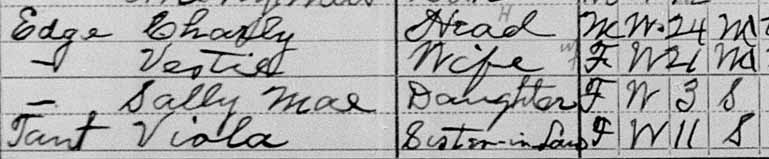 Edge Charly Head M W 24 M
— Vestie Wife F W 21 M
— Sally Mae Daughter F W 3 S
Tant Viola Sister-in-Law F W 11 S